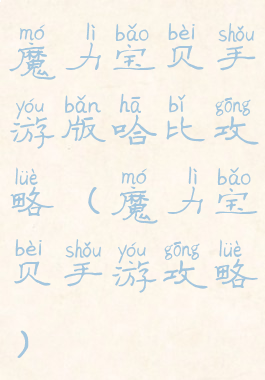 mó lì bǎo bèi shǒu
魔力宝贝手
yóu bǎn hā bǐ gōng
游版哈比攻
lüè mó lì bǎo
略（魔力宝
bèi shǒu yóu gōng lüè
贝手游攻略
）